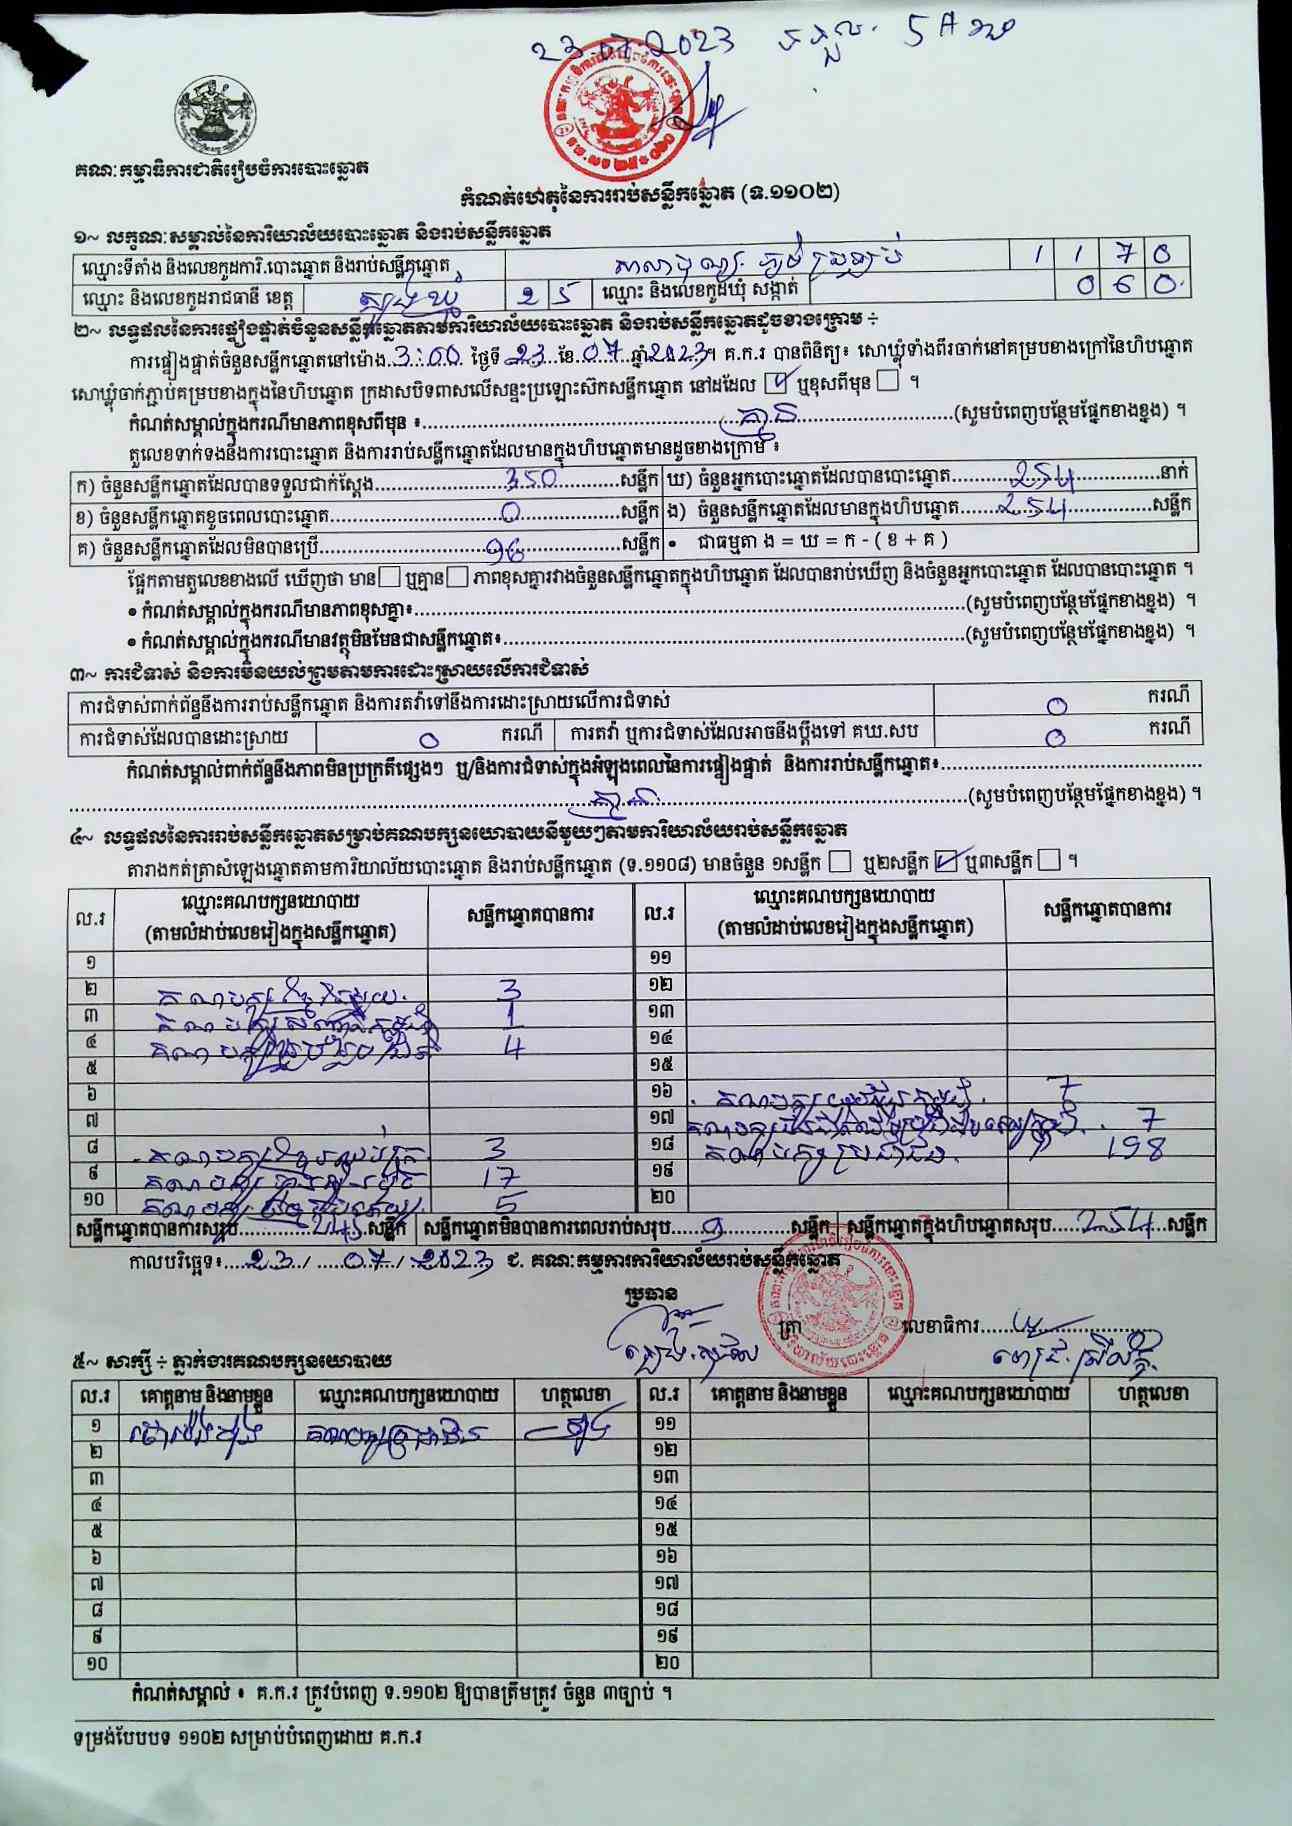 23 07 2023
គណៈកម្មាធិការជាតិរៀបចំការបោះឆ្នោត
កំណត់ហេតុនៃការរាប់សន្លឹកឆ្នោត (ទ.១១០២)
១~ លក្ខណៈសម្គាល់នៃការិយាល័យបោះឆ្នោត និងរាប់សន្លឹកឆ្នោត
ឈ្មោះទីតាំង និងលេខកូដការិ.បោះឆ្នោត និងរាប់សន្លឹកឆ្នោត 1 1 7 0
ឈ្មោះ និងលេខកូដរាជធានី ខេត្ត ត្បូងឃ្មុំ 2 5 ឈ្មោះ និងលេខកូដឃុំ សង្កាត់ 0 6 0
២~ លទ្ធផលនៃការផ្ទៀងផ្ទាត់ចំនួនសន្លឹកឆ្នោតតាមការិយាល័យបោះឆ្នោត និងរាប់សន្លឹកឆ្នោតដូចខាងក្រោម ÷
ការផ្ទៀងផ្ទាត់ចំនួនសន្លឹកឆ្នោតនៅម៉ោង 3:00 ថ្ងៃទី 23 ខែ 07 ឆ្នាំ 2023។ គ.ក.រ បានពិនិត្យ៖ សោឃ្លុំទាំងពីរចាក់នៅគម្របខាងក្រៅនៃហិបឆ្នោត
សោឃ្លុំចាក់ភ្ជាប់គម្របខាងក្នុងនៃហិបឆ្នោត ក្រដាសបិទពាសលើសន្ទះប្រឡោះស៊កសន្លឹកឆ្នោត នៅដដែល ☑ ឬខុសពីមុន ☐ ។
កំណត់សម្គាល់ក្នុងករណីមានភាពខុសពីមុន ៖ គ្មាន (សូមបំពេញបន្ថែមផ្នែកខាងខ្នង) ។
តួលេខទាក់ទងនឹងការបោះឆ្នោត និងការរាប់សន្លឹកឆ្នោតដែលមានក្នុងហិបឆ្នោតមានដូចខាងក្រោម ៖
ក) ចំនួនសន្លឹកឆ្នោតដែលបានទទួលជាក់ស្តែង 350 សន្លឹក ឃ) ចំនួនអ្នកបោះឆ្នោតដែលបានបោះឆ្នោត 254 នាក់
ខ) ចំនួនសន្លឹកឆ្នោតខូចពេលបោះឆ្នោត 0 សន្លឹក ង) ចំនួនសន្លឹកឆ្នោតដែលមានក្នុងហិបឆ្នោត 254 សន្លឹក
គ) ចំនួនសន្លឹកឆ្នោតដែលមិនបានប្រើ 96 សន្លឹក • ជាធម្មតា ង = ឃ = ក - ( ខ + គ )
ផ្អែកតាមតួលេខខាងលើ ឃើញថា មាន ☐ ឬគ្មាន ☐ ភាពខុសគ្នារវាងចំនួនសន្លឹកឆ្នោតក្នុងហិបឆ្នោត ដែលបានរាប់ឃើញ និងចំនួនអ្នកបោះឆ្នោត ដែលបានបោះឆ្នោត ។
• កំណត់សម្គាល់ក្នុងករណីមានភាពខុសគ្នា៖ (សូមបំពេញបន្ថែមផ្នែកខាងខ្នង) ។
• កំណត់សម្គាល់ក្នុងករណីមានវត្ថុមិនមែនជាសន្លឹកឆ្នោត៖ (សូមបំពេញបន្ថែមផ្នែកខាងខ្នង) ។
៣~ ការជំទាស់ និងការមិនយល់ព្រមតាមការដោះស្រាយលើការជំទាស់
ការជំទាស់ពាក់ព័ន្ធនឹងការរាប់សន្លឹកឆ្នោត និងការតវ៉ាទៅនឹងការដោះស្រាយលើការជំទាស់ 0 ករណី
ការជំទាស់ដែលបានដោះស្រាយ 0 ករណី ការតវ៉ា ឬការជំទាស់ដែលអាចនឹងប្តឹងទៅ គឃ.សប 0 ករណី
កំណត់សម្គាល់ពាក់ព័ន្ធនឹងភាពមិនប្រក្រតីផ្សេងៗ ឬ/និងការជំទាស់ក្នុងអំឡុងពេលនៃការផ្ទៀងផ្ទាត់ និងការរាប់សន្លឹកឆ្នោត៖
គ្មាន (សូមបំពេញបន្ថែមផ្នែកខាងខ្នង) ។
៤~ លទ្ធផលនៃការរាប់សន្លឹកឆ្នោតសម្រាប់គណបក្សនយោបាយនីមួយៗតាមការិយាល័យរាប់សន្លឹកឆ្នោត
តារាងកត់ត្រាសំឡេងឆ្នោតតាមការិយាល័យបោះឆ្នោត និងរាប់សន្លឹកឆ្នោត (ទ.១១០៨) មានចំនួន ១សន្លឹក ☐ ឬ២សន្លឹក ☑ ឬ៣សន្លឹក ☐ ។
ល.រ ឈ្មោះគណបក្សនយោបាយ (តាមលំដាប់លេខរៀងក្នុងសន្លឹកឆ្នោត) សន្លឹកឆ្នោតបានការ ល.រ ឈ្មោះគណបក្សនយោបាយ (តាមលំដាប់លេខរៀងក្នុងសន្លឹកឆ្នោត) សន្លឹកឆ្នោតបានការ
១ ១១
២ គណបក្សខ្មែរតែមួយ 3 ១២
៣ គណបក្ស 1 ១៣
៤ គណបក្ស 4 ១៤
៥ ១៥
៦ ១៦ គណបក្ស 7
៧ ១៧ គណបក្ស 7
៨ គណបក្ស 3 ១៨ គណបក្សប្រជាជន 198
៩ គណបក្ស 17 ១៩
១០ គណបក្ស 5 ២០
សន្លឹកឆ្នោតបានការសរុប 245 សន្លឹក សន្លឹកឆ្នោតមិនបានការពេលរាប់សរុប 9 សន្លឹក សន្លឹកឆ្នោតក្នុងហិបឆ្នោតសរុប 254 សន្លឹក
កាលបរិច្ឆេទ៖ 23 / 07 / 2023 ជ. គណៈកម្មការការិយាល័យរាប់សន្លឹកឆ្នោត
ប្រធាន
ត្រា លេខាធិការ
៥~ សាក្សី ÷ ភ្នាក់ងារគណបក្សនយោបាយ
ល.រ គោត្តនាម និងនាមខ្លួន ឈ្មោះគណបក្សនយោបាយ ហត្ថលេខា ល.រ គោត្តនាម និងនាមខ្លួន ឈ្មោះគណបក្សនយោបាយ ហត្ថលេខា
១ គណបក្សប្រជាជន ១១
២ ១២
៣ ១៣
៤ ១៤
៥ ១៥
៦ ១៦
៧ ១៧
៨ ១៨
៩ ១៩
១០ ២០
កំណត់សម្គាល់ ៖ គ.ក.រ ត្រូវបំពេញ ទ.១១០២ ឱ្យបានត្រឹមត្រូវ ចំនួន ៣ច្បាប់ ។
ទម្រង់បែបបទ ១១០២ សម្រាប់បំពេញដោយ គ.ក.រ